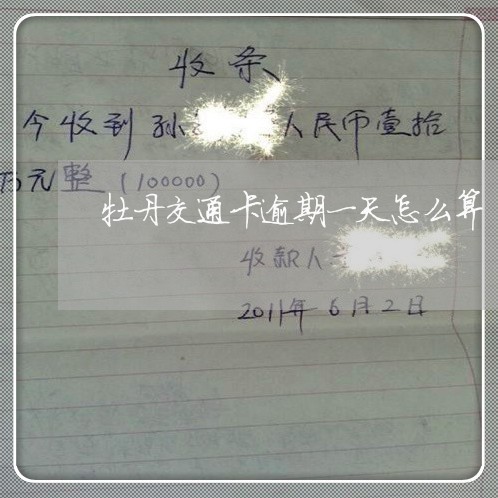 收条
今收到孙 人民币壹拾
万元整（100000）
牡丹交通卡逾期一天怎么算
收款人
2011年6月2日